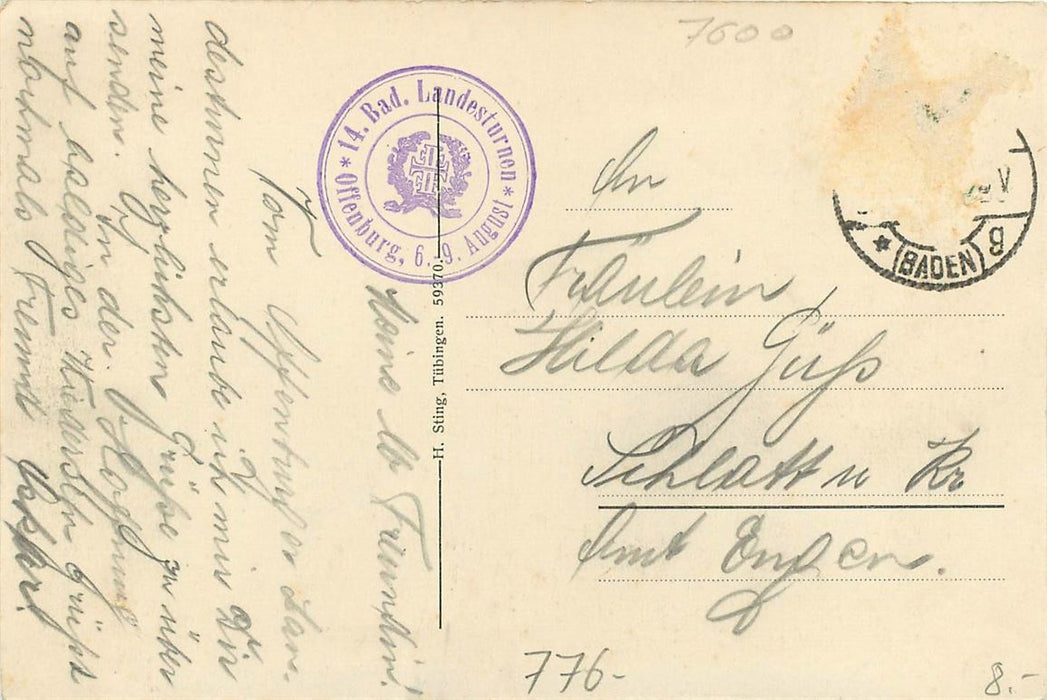 7600
14. Bad. Landesturnen
* Offenburg, 6.-9. August *
(BADEN) g
V
H. Sting, Tübingen. 59370.
An
Fräulein
Hilda Güß
Schlatt u Kr
Amt Engen.
Meine lb Freundin!
Vom Offenburger Lan-
desturnen erlaube ich mir Dir
meine herzlichsten Grüße zu über
senden. In der Hoffnung
auf baldiges Wiedersehn grüßt
nochmals Freund
776-
8.-